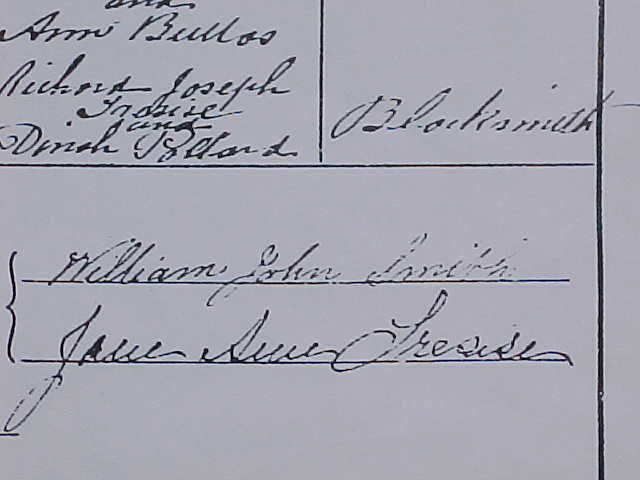 and
Ann Bullos
Richard Joseph
Tresise
and
Dinah Pollard
Blacksmith
William John Smith
Jane Anne Tresise